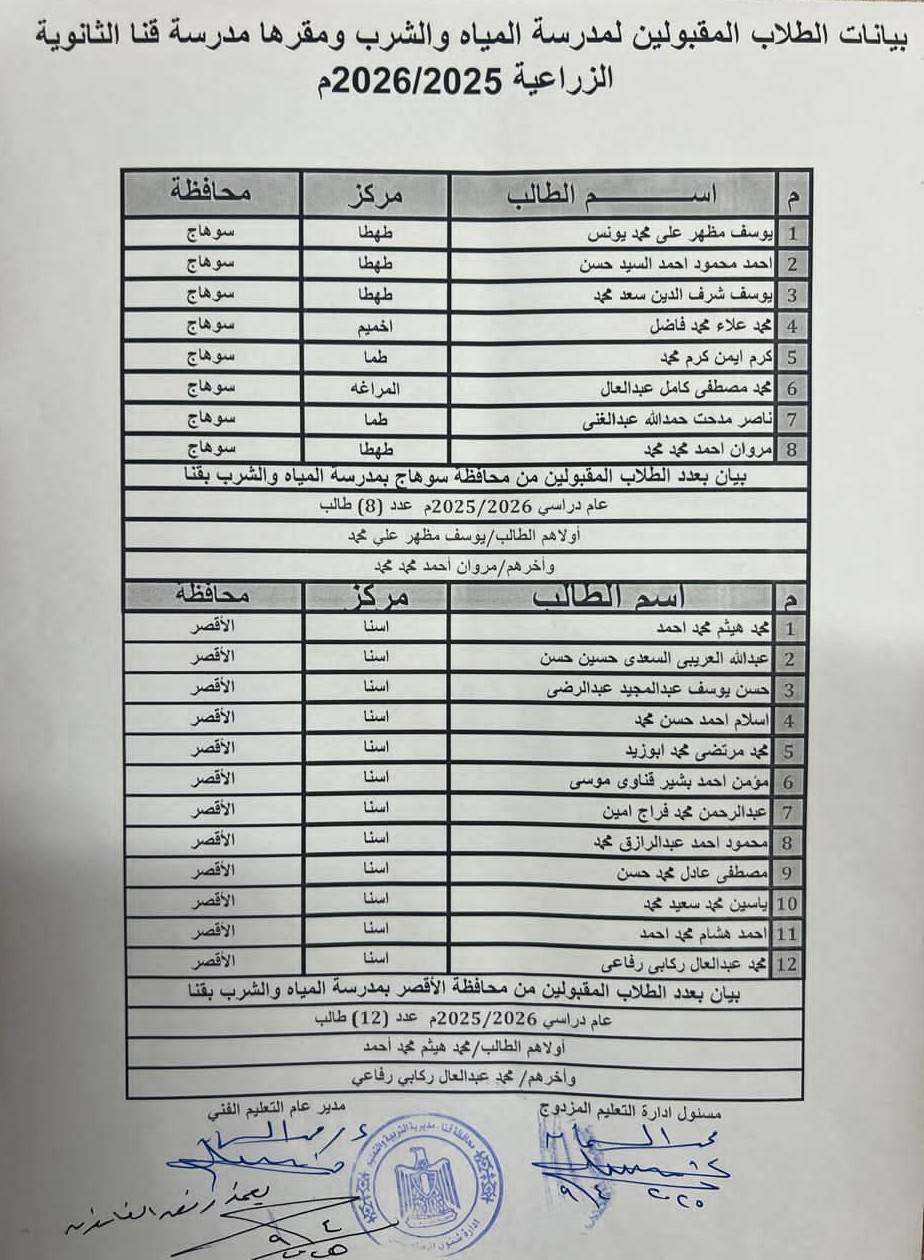 بيانات الطلاب المقبولين لمدرسة المياه والشرب ومقرها مدرسة قنا الثانوية
الزراعية 2026/2025م
م اســـــم الطالب مركز محافظة
1 يوسف مظهر على محمد يونس طهطا سوهاج
2 احمد محمود احمد السيد حسن طهطا سوهاج
3 يوسف شرف الدين سعد محمد طهطا سوهاج
4 محمد علاء محمد فاضل اخميم سوهاج
5 كرم ايمن كرم محمد طما سوهاج
6 محمد مصطفى كامل عبدالعال المراغه سوهاج
7 ناصر مدحت حمدالله عبدالغنى طما سوهاج
8 مروان احمد محمد محمد طهطا سوهاج
بيان بعدد الطلاب المقبولين من محافظة سوهاج بمدرسة المياه والشرب بقنا
عام دراسي 2025/2026م عدد (8) طالب
أولاهم الطالب/يوسف مظهر علي محمد
وأخرهم/مروان أحمد محمد محمد
م اسم الطالب مركز محافظة
1 محمد هيثم محمد احمد اسنا الأقصر
2 عبدالله العريبى السعدى حسين حسن اسنا الأقصر
3 حسن يوسف عبدالمجيد عبدالرضى اسنا الأقصر
4 اسلام احمد حسن محمد اسنا الأقصر
5 محمد مرتضى محمد ابوزيد اسنا الأقصر
6 مؤمن احمد بشير قناوى موسى اسنا الأقصر
7 عبدالرحمن محمد فراج امين اسنا الأقصر
8 محمود احمد عبدالرازق محمد اسنا الأقصر
9 مصطفى عادل محمد حسن اسنا الأقصر
10 ياسين محمد سعيد محمد اسنا الأقصر
11 احمد هشام محمد احمد اسنا الأقصر
12 محمد عبدالعال ركابى رفاعى اسنا الأقصر
بيان بعدد الطلاب المقبولين من محافظة الأقصر بمدرسة المياه والشرب بقنا
عام دراسي 2025/2026م عدد (12) طالب
أولاهم الطالب/محمد هيثم محمد أحمد
وأخرهم/ محمد عبدالعال ركابي رفاعي
مسئول ادارة التعليم المزدوج مدير عام التعليم الفني
محافظة قنا . مديرية التربية والتعليم
٢٠٢٥